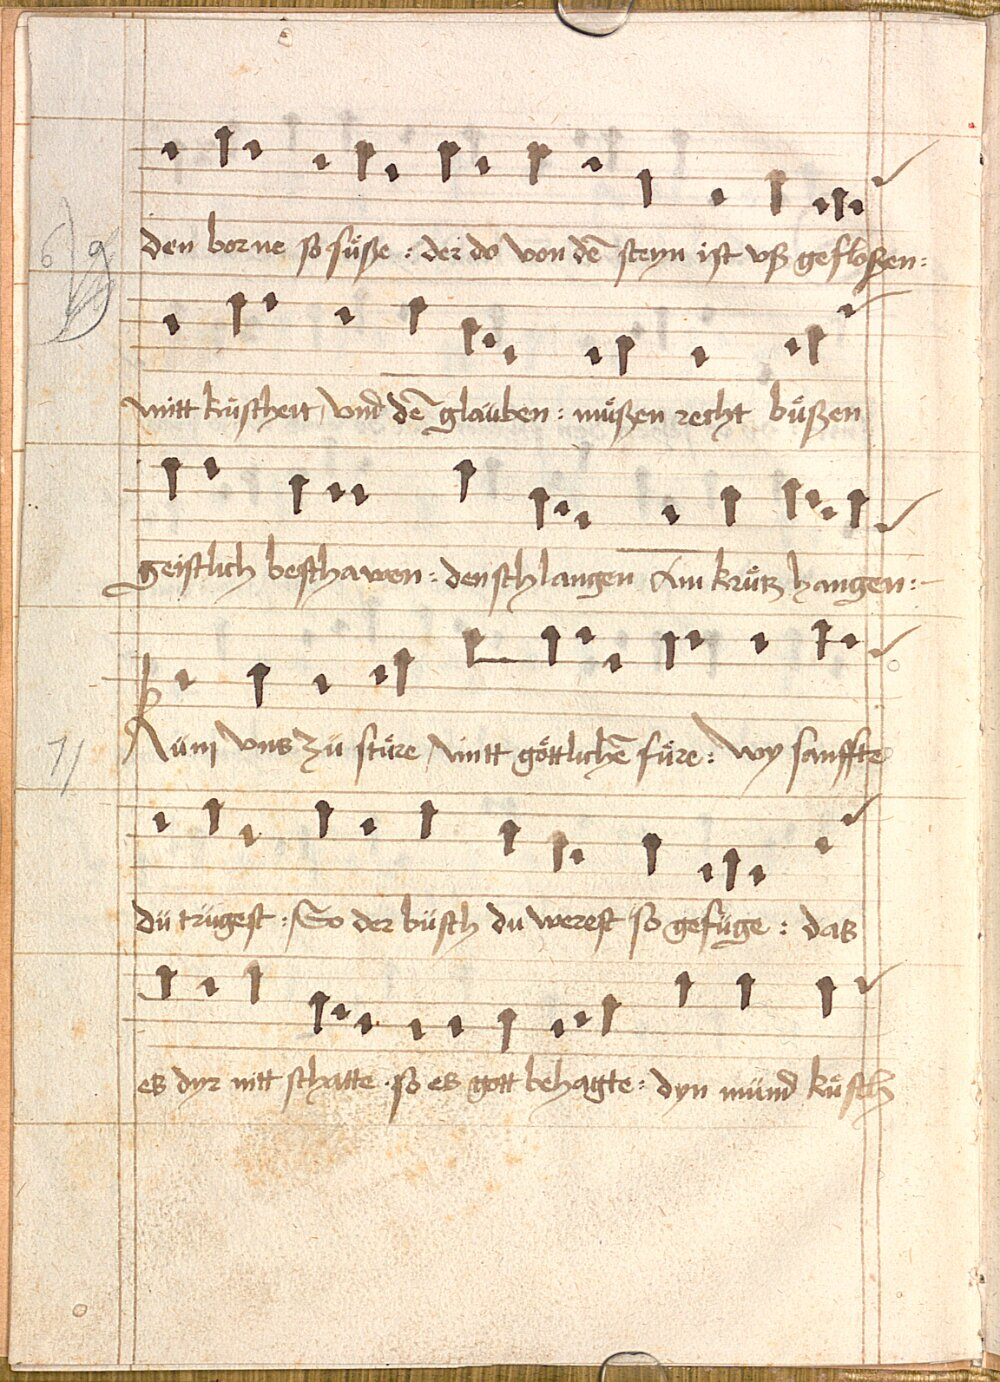 den borne so süͤße : der do von dē steyn ist vß gefloßen :
mitt kuͤscheit vnd dē glauben : muͤßen recht buͤßen
geistlich beschawen : den schlangen Am kruͤtz hangen :
Kum vns zu stuͤre mitt goͤttlichē fuͤre : wy sanffte
du trugest : So der busch du werest so gefuge : das
es dyr nitt schatte . so es gott behagte : dyn mund kuͤsch